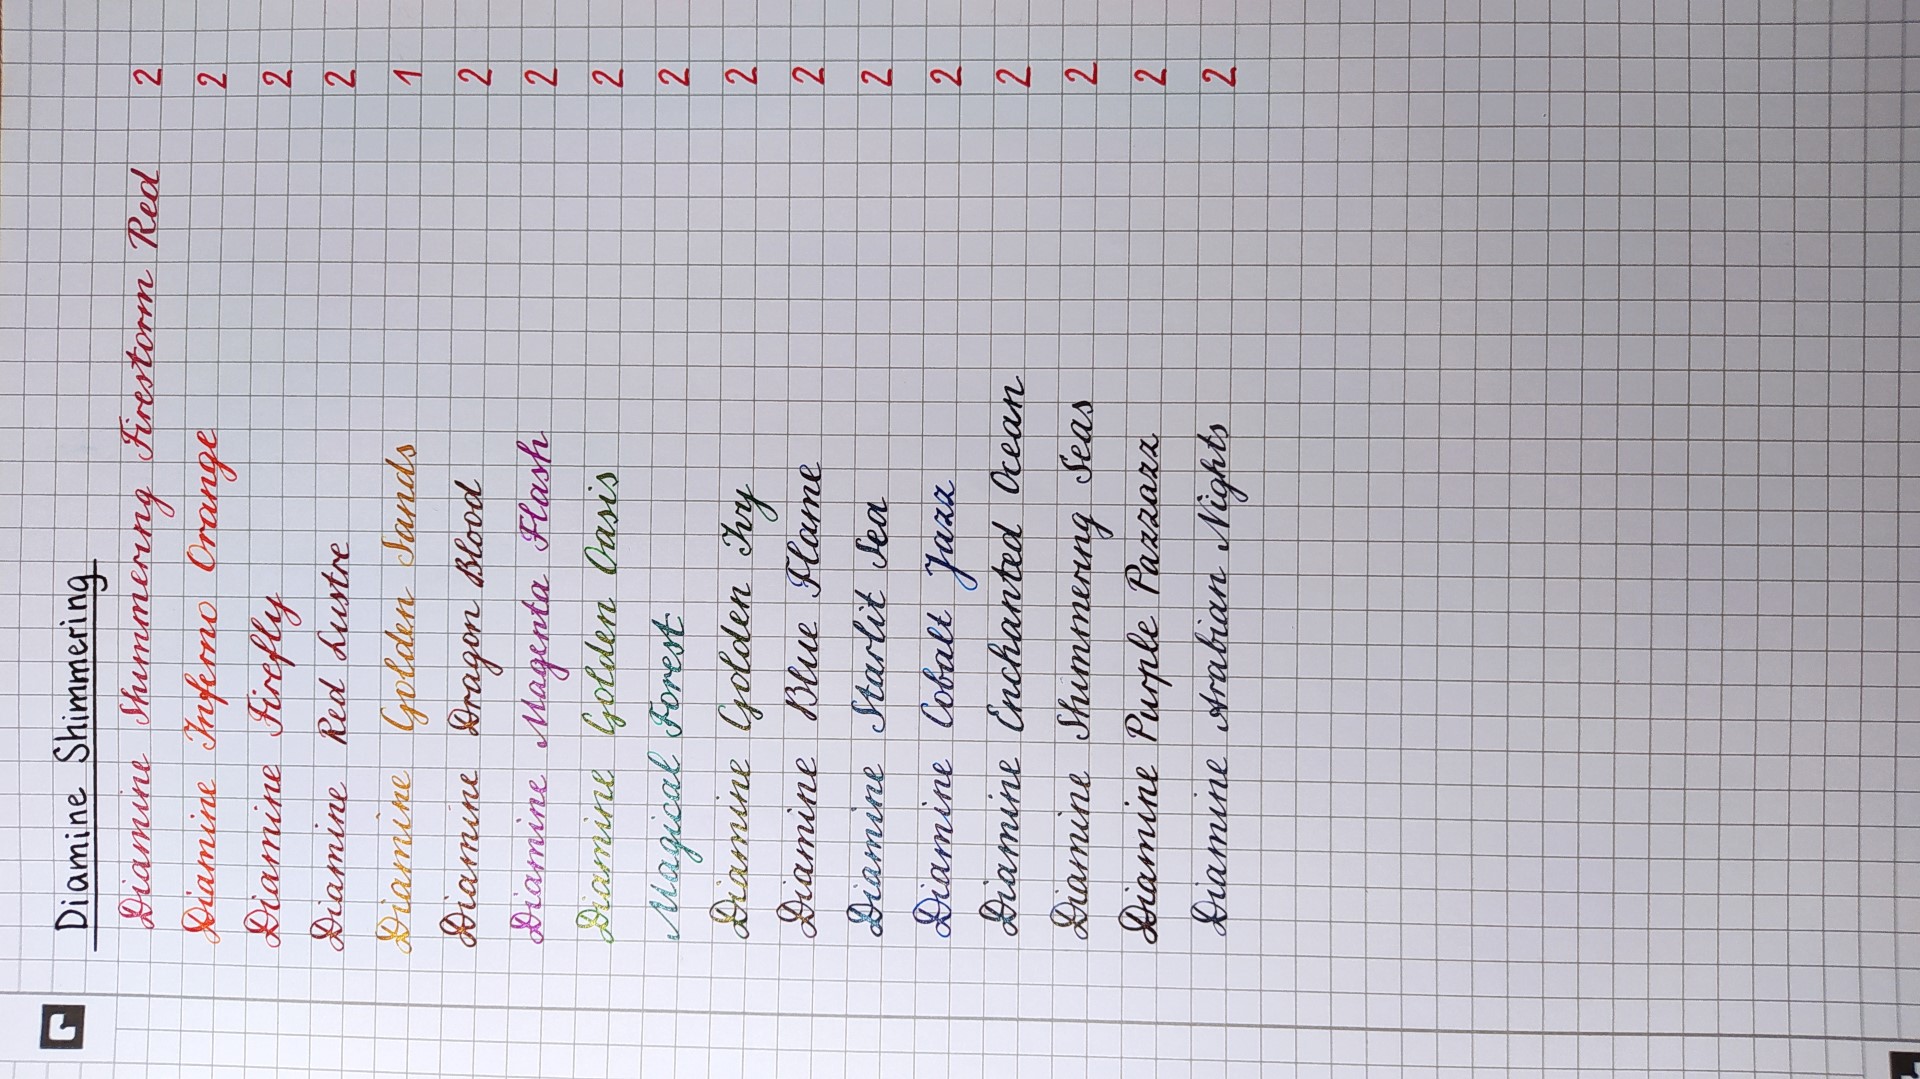 Diamine Shimmering
Diamine Shimmering Firestorm Red 2
Diamine Inferno Orange 2
Diamine Firefly 2
Diamine Red Lustre 2
Diamine Golden Sands 1
Diamine Dragon Blood 2
Diamine Magenta Flash 2
Diamine Golden Oasis 2
Magical Forest 2
Diamine Golden Ivy 2
Diamine Blue Flame 2
Diamine Starlit Sea 2
Diamine Cobalt Jazz 2
Diamine Enchanted Ocean 2
Diamine Shimmering Seas 2
Diamine Purple Pazzazz 2
Diamine Arabian Nights 2